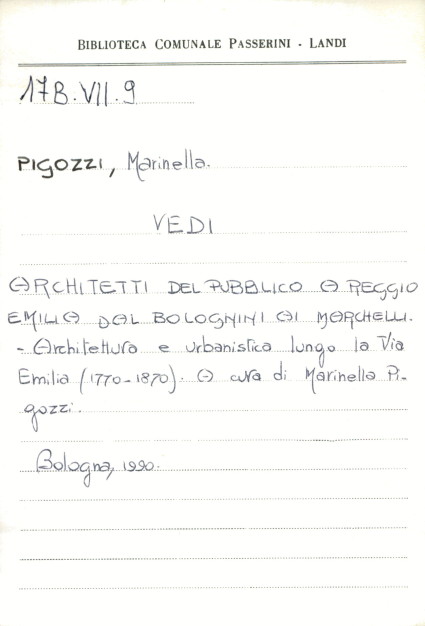 BIBLIOTECA COMUNALE PASSERINI - LANDI
17B.VII.9
PIGOZZI, Marinella.
VEDI
ARCHITETTI DEL PUBBLICO A REGGIO
EMILIA DAL BOLOGNINI AI MARCHELLI.
- Architettura e urbanistica lungo la Via
Emilia (1770-1870). A cura di Marinella Pi-
gozzi.
Bologna, 1990.